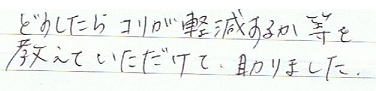 どうしたら コリが軽減するか 等を
教えていただけて、助かりました。